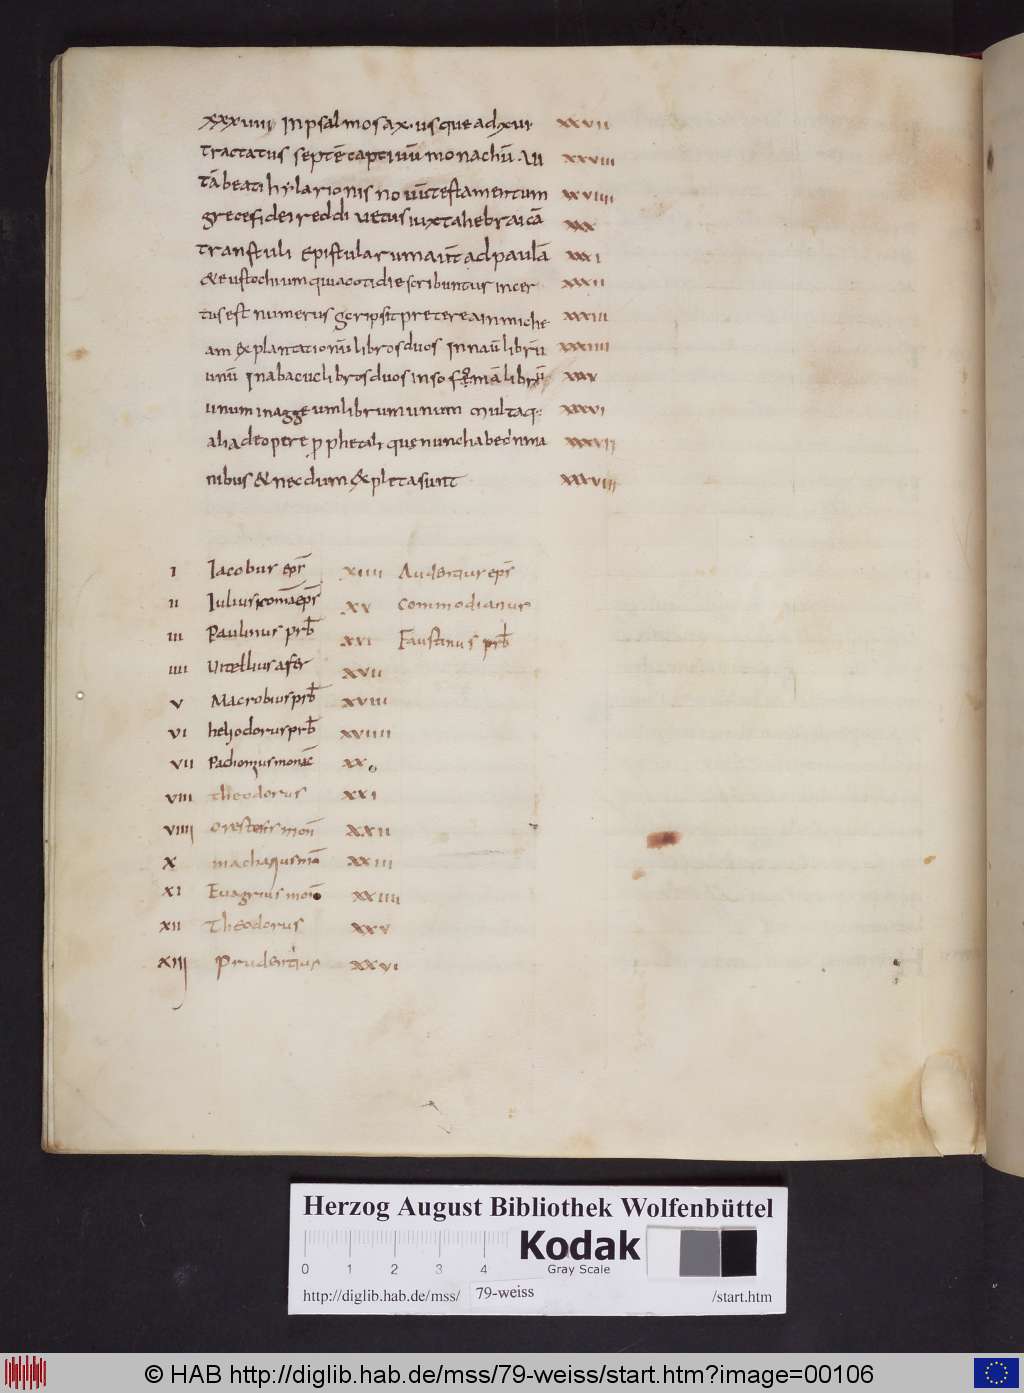 xxxuiiii inpsalmos ax. usque adxui xxvii
tractatus septē captiuū monachū .Ui xxviii
tā beati hylarionis nouū testamentum xxviiii
grece fidei reddi uetus iuxta hebraicā xxx
transtuli epistularum aūt ad paulā xxxi
& eustochium quia cotidie scribuntur incer xxxii
tus est numerus scripsit preterea in miche xxxiii
am explanationū libros duos in naū librū xxxiiii
unū in abacuc libros duos in sofoniā librū xxxv
unum in aggeum librum unum multaq: xxxvi
alia de opere prophetali que nunc habeo in ma xxxvii
nibus & necdum expleta sunt xxxviii
i Iacobus eps xiiii Audentius eps
ii Iulius romā eps xv commodianus
iii Paulinus prb xvi Faustinus prb
iiii Uitellius afer xvii
v Macrobius prb xviii
vi heliodorus prb xviiii
vii Pachomius monac xx
viii theodorus xxi
viiii oresiesis mon xxii
x macharius mo xxiii
xi Euagrius mon xxiiii
xii Theodorus xxv
xiii prudentius xxvi
Herzog August Bibliothek Wolfenbüttel
0 1 2 3 4 Kodak
Gray Scale
http://diglib.hab.de/mss/ 79-weiss /start.htm
© HAB http://diglib.hab.de/mss/79-weiss/start.htm?image=00106